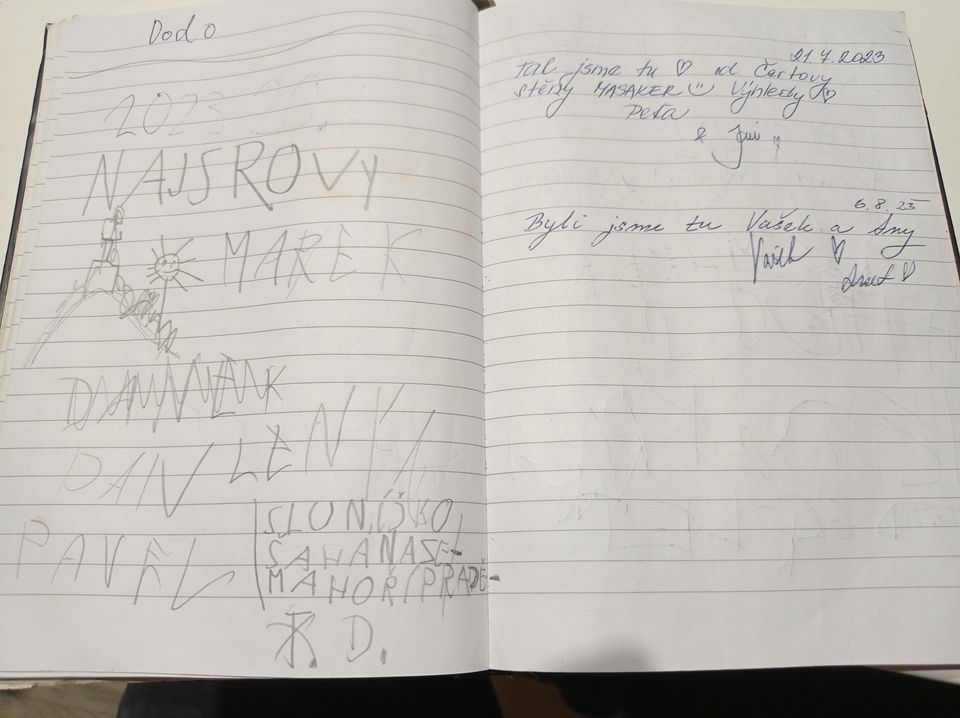 Dodo
2023
NAJSROVÝ
MAREK
DAN
LENY
PAVEL
SLUNÍČKO,
SAHANASE-
MAHOŘÍPRADĚ-
D.
21.7.2023
Tak jsme tu ♡ od Čertovy
stěny MASAKER Výhledy ♡
Peťa
&
6.8.23
Byli jsme tu Vašek a Any
Vašek ♡
♡